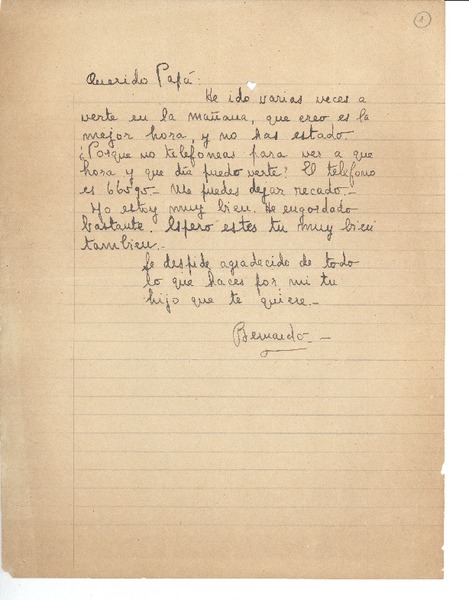 1
Querido Papá:
He ido varias veces a
verte en la mañana, que creo es la
mejor hora, y no has estado.
¿Porque no telefoneas para ver a que
hora y que día puedo verte? El teléfono
es 66090.- Me puedes dejar recado.-
Yo estoy muy bien. He engordado
bastante. Espero estes tu muy bien
tambien.-
Se despide agradecido de todo
lo que haces por mi tu
hijo que te quiere.-
Bernardo.-